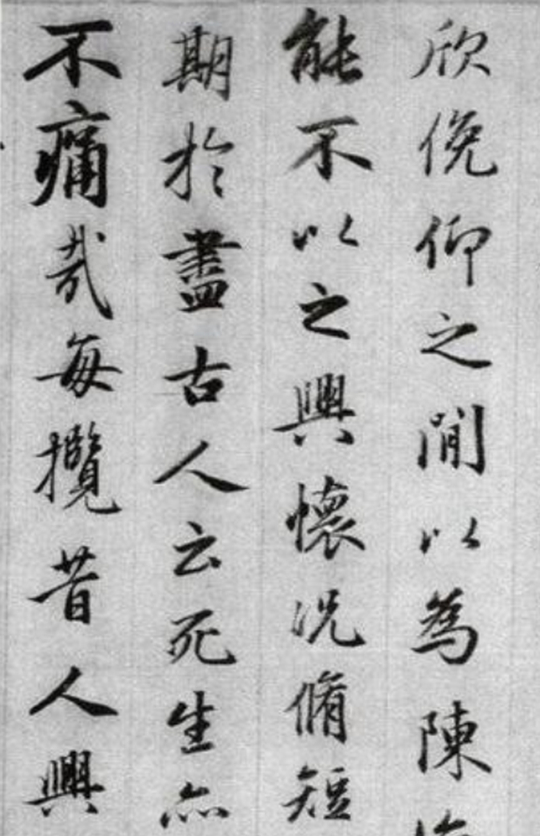 欣俛仰之間以為陳
能不以之興懷況脩短
期於盡古人云死生亦
不痛哉每攬昔人興